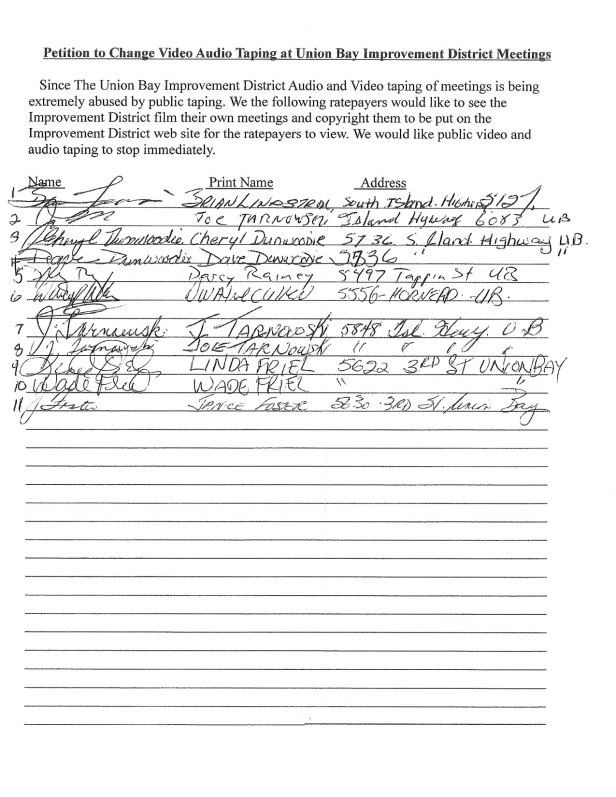 Petition to Change Video Audio Taping at Union Bay Improvement District Meetings
Since The Union Bay Improvement District Audio and Video taping of meetings is being
extremely abused by public taping. We the following ratepayers would like to see the
Improvement District film their own meetings and copyright them to be put on the
Improvement District web site for the ratepayers to view. We would like public video and
audio taping to stop immediately.
Name Print Name Address
1 BRIAN LINDSTROM South Island Highway 5127
2 JOE TARNOWSKI Island Hyway 6083 UB
3 Cheryl Dunwoodie Cheryl Dunwoodie 5736 S. Island Highway UB.
4 Dunwoodie Dave Dunwoodie 5736 " "
5 Darcy Rainey 5497 Tappin St UB
6 5556 - UB.
7 J. Tarnowski J. TARNOWSKI 5848 Isl. Hwy. UB
8 J. Tarnowski JOE TARNOWSKI " " " "
9 LINDA FRIEL 5622 3RD ST UNION BAY
10 Wade Friel WADE FRIEL " "
11 J Foster FOSTER 5830 3RD St. Union Bay